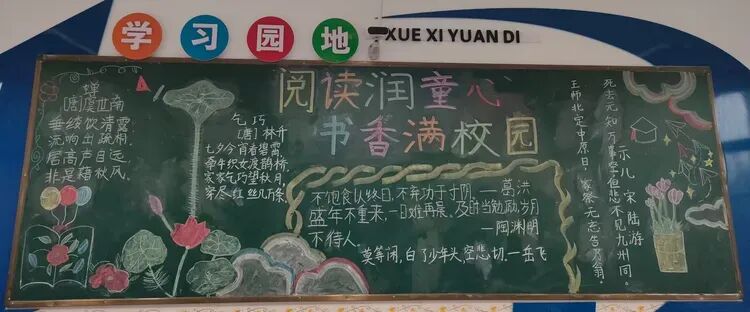 学习园地
XUE XI YUAN DI
阅读润童心
书香满校园
蝉
[唐]虞世南
垂緌饮清露
流响出疏桐.
居高声自远
非是藉秋风.
气巧
[唐]林升
七夕今宵看碧霄
牵牛织女渡鹊桥.
家家气巧望秋月
穿尽红丝几万条.
不饱食以终日,不弃功于寸阴.一葛洪
盛年不重来,一日难再晨,及时当勉励,岁月
不待人. 一陶渊明
莫等闲,白了少年头,空悲切.一岳飞
示儿 宋 陆游
死去元知万事空但悲不见九州同.
王师北定中原日,家祭无忘告乃翁.